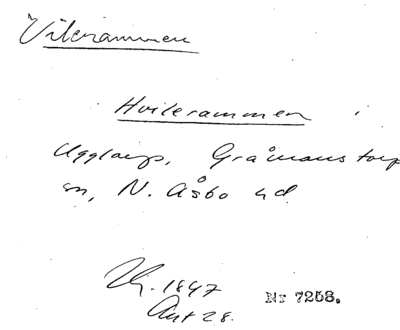 Vilerammen
Hvilerammen i
Ugglarp, Gråmanstorp
sn, N. Åsbo hd.
1847
Akt 28.
Nr 7258.